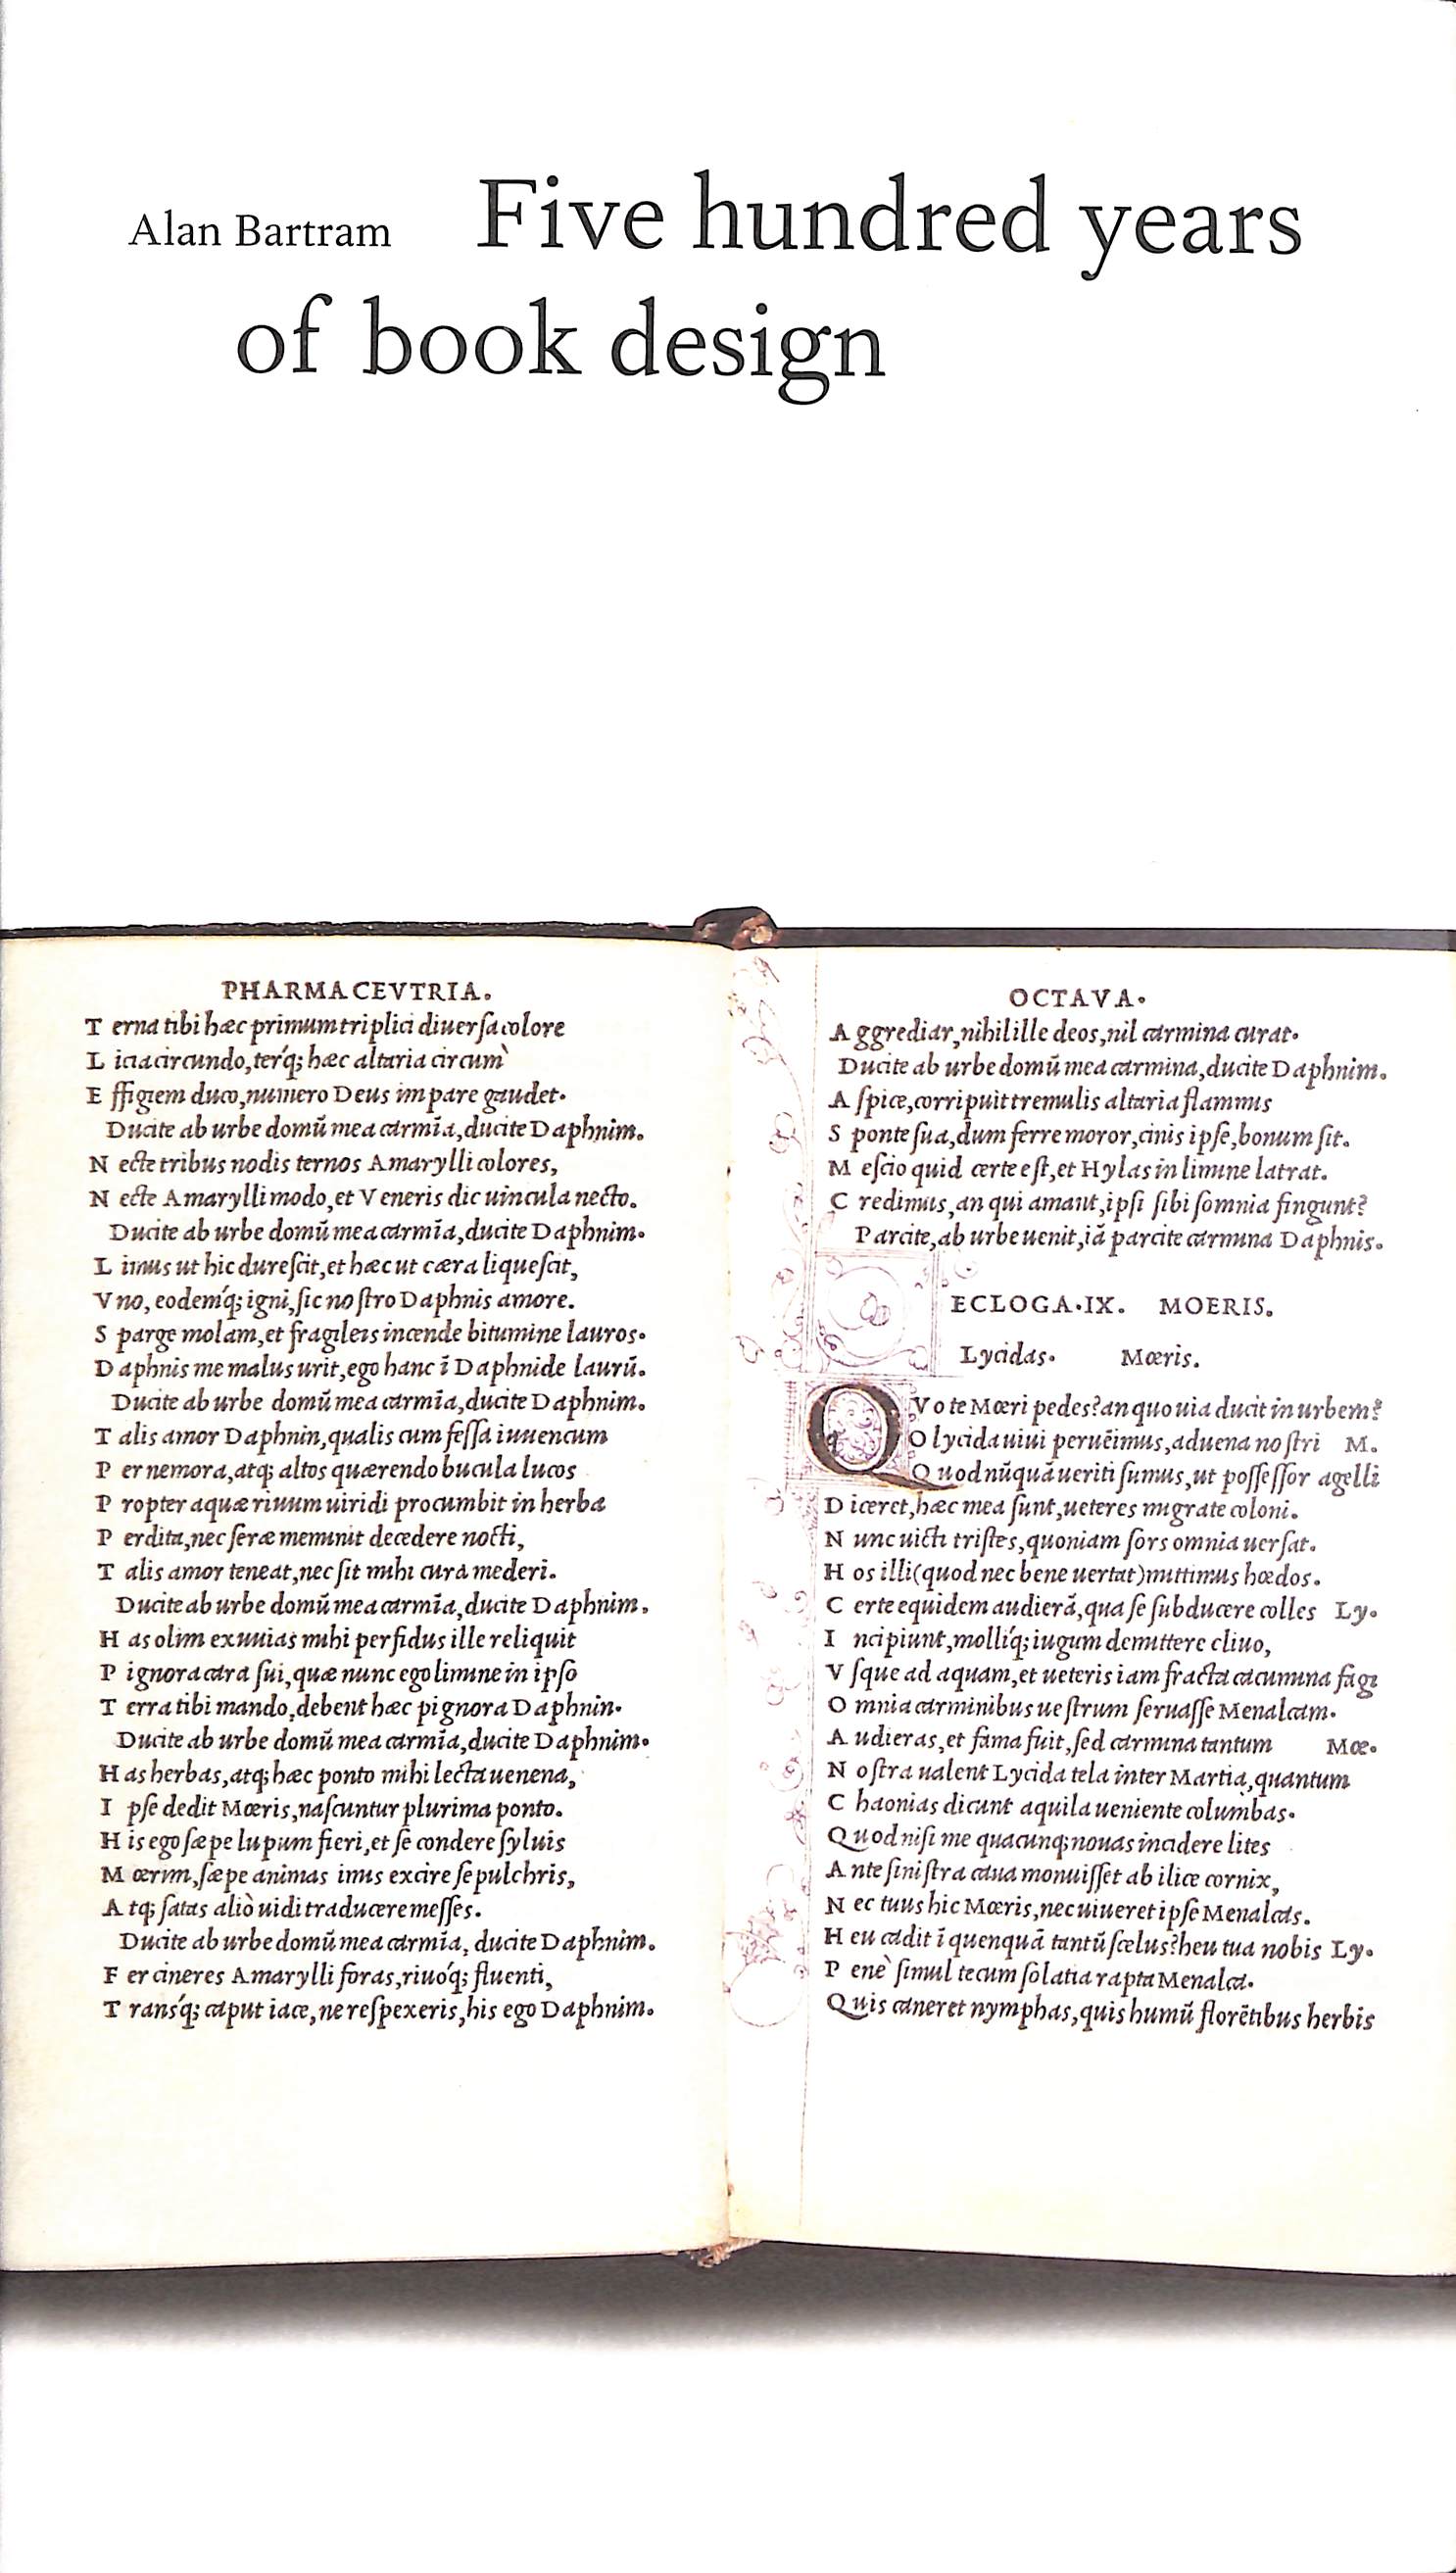 Alan Bartram Five hundred years
of book design
PHARMACEVTRIA.
T erna tibi hæc primum triplici diuerſa colore
L icia circundo, terq́; hæc altaria circum̀
E ffigiem duco, numero Deus impare gaudet.
Ducite ab urbe domū mea carmīa, ducite Daphnim.
N ecte tribus nodis ternos Amarylli colores,
N ecte Amarylli modo, et Veneris dic uincula necto.
Ducite ab urbe domū mea carmīa, ducite Daphnim.
L imus ut hic dureſcit, et hæc ut cæra liqueſcit,
V no, eodemq́; igni, ſic noſtro Daphnis amore.
S parge molam, et fragileis incende bitumine lauros.
D aphnis me malus urit, ego hanc ī Daphnide laurū.
Ducite ab urbe domū mea carmīa, ducite Daphnim.
T alis amor Daphnin, qualis cum feſſa iuuencum
P er nemora, atq; altos quærendo bucula lucos
P ropter aquæ riuum uiridi procumbit in herba
P erdita, nec ſeræ meminit decedere nocti,
T alis amor teneat, nec ſit mihi cura mederi.
Ducite ab urbe domū mea carmīa, ducite Daphnim.
H as olim exuuias mihi perfidus ille reliquit
P ignora cara ſui, quæ nunc ego limine in ipſo
T erra tibi mando, debent hæc pignora Daphnin.
Ducite ab urbe domū mea carmīa, ducite Daphnim.
H as herbas, atq; hæc ponto mihi lecta uenena,
I pſe dedit Mœris, naſcuntur plurima ponto.
H is ego ſæpe lupum fieri, et ſe condere ſyluis
M œrim, ſæpe animas imis excire ſepulchris,
A tq; ſatas aliò uidi traducere meſſes.
Ducite ab urbe domū mea carmīa, ducite Daphnim.
F er cineres Amarylli foras, riuoq́; fluenti,
T ransq́; caput iace, ne reſpexeris, his ego Daphnim.
OCTAVA.
A ggrediar, nihil ille deos, nil carmina curat.
Ducite ab urbe domū mea carmina, ducite Daphnim.
A ſpice, corripuit tremulis altaria flammis
S ponte ſua, dum ferre moror, cinis ipſe, bonum ſit.
M eſcio quid certe eſt, et Hylas in limine latrat.
C redimus, an qui amant, ipſi ſibi ſomnia fingunt?
Parcite, ab urbe uenit, iā parcite carmina Daphnis.
ECLOGA.IX. MOERIS.
Lycidas. Mœris.
QVo te Mœri pedes? an quo uia ducit in urbem?
O lycida uiui peruēimus, aduena noſtri M.
Quod nūquā ueriti ſumus, ut poſſeſſor agelli
D iceret, hæc mea ſunt, ueteres migrate coloni.
N unc uicti triſtes, quoniam ſors omnia uerſat.
H os illi (quod nec bene uertat) mittimus hœdos.
C erte equidem audierā, qua ſe ſubducere colles Ly.
I ncipiunt, molliq́; iugum demittere cliuo,
V ſque ad aquam, et ueteris iam fracta cacumina fagi
O mnia carminibus ueſtrum ſeruaſſe Menalcam.
A udieras, et fama fuit, ſed carmina tantum Mœ.
N oſtra ualent Lycida tela inter Martia, quantum
C haonias dicunt aquila ueniente columbas.
Quod niſi me quacunq; nouas incidere lites
A nte ſiniſtra caua monuiſſet ab ilice cornix,
N ec tuus hic Mœris, nec uiueret ipſe Menalcas.
H eu cadit ī quenquā tantū ſcelus? heu tua nobis Ly.
P enè ſimul tecum ſolatia rapta Menalca.
Quis caneret nymphas, quis humū florētibus herbis